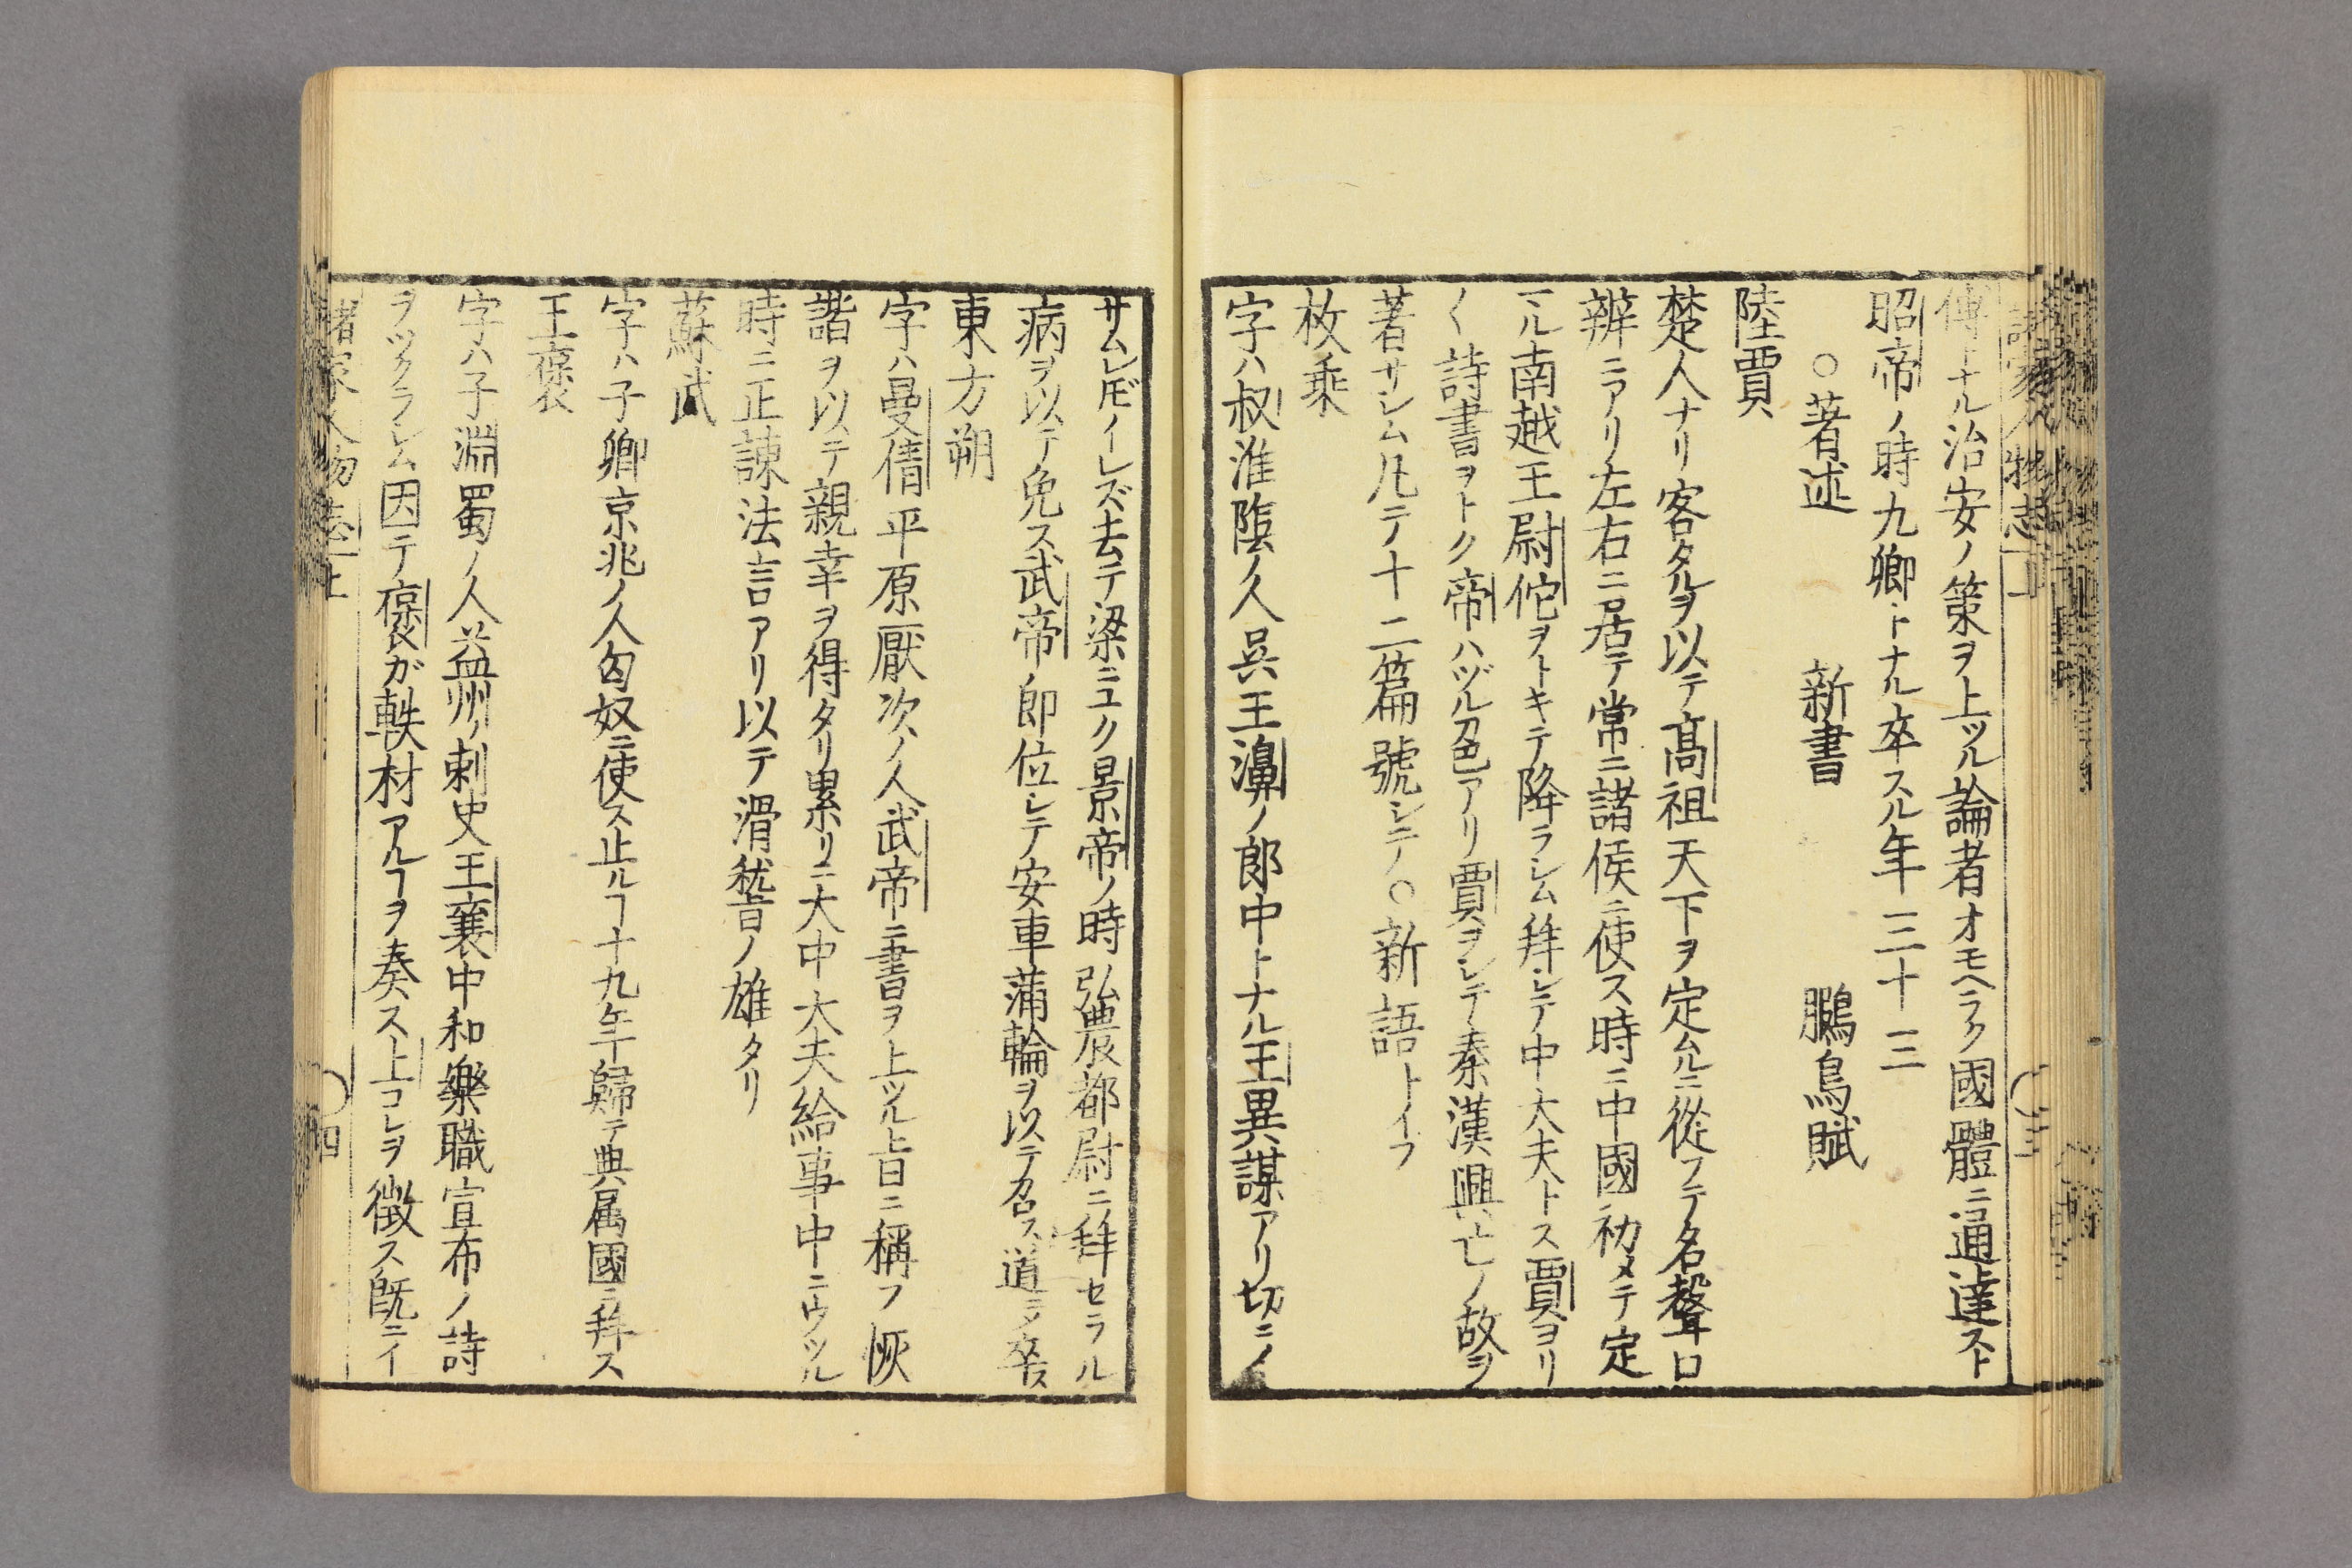 諸家人物志 上
傅トナル治安ノ策ヲ上ツル論者オモヘラク國體ニ通達スト
昭帝ノ時九卿トナル卒スル年三十三
○著述 新書 鵩鳥賦
陸賈
楚人ナリ客タルヲ以テ髙祖天下ヲ定ムルニ從フテ名聲口
辨ニアリ左右ニ居テ常ニ諸侯ニ使ス時ニ中國初メテ定
マル南越王尉佗ヲトキテ降ラシム拜シテ中大夫トス賈ヨリ
〱詩書ヲトク帝ハヅル色アリ賈ヲシテ秦漢興亡ノ故ヲ
著サシム凡テ十二篇號シテ○新語トイフ
枚乘
字ハ叔淮陰ノ人呉王濞ノ郎中トナル王異謀アリ切ニイ
サムレ𪜈イレズ去テ梁ニユク景帝ノ時弘農都尉ニ拜セラル
病ヲ以テ免ス武帝即位シテ安車蒲輪ヲ以テ召ス道ニテ卒ス
東方朔
字ハ曼倩平原厭次ノ人武帝ニ書ヲ上ツル旨ニ稱フ恢
諧ヲ以テ親幸ヲ得タリ累リニ大中大夫給事中ニウツル
時ニ正諌法言アリ以テ滑稽ノ雄タリ
蘇武
字ハ子卿京兆ノ人匈奴ニ使ス止ルヿ十九年歸テ典属國ニ拜ス
王褒
字ハ子淵蜀ノ人益州ノ刺史王襄中和樂職宣布ノ詩
ヲツクラシム因テ褒ガ軼材アルヿヲ奏ス上コレヲ徴ス既ニイ
諸家人物志 上 ○四